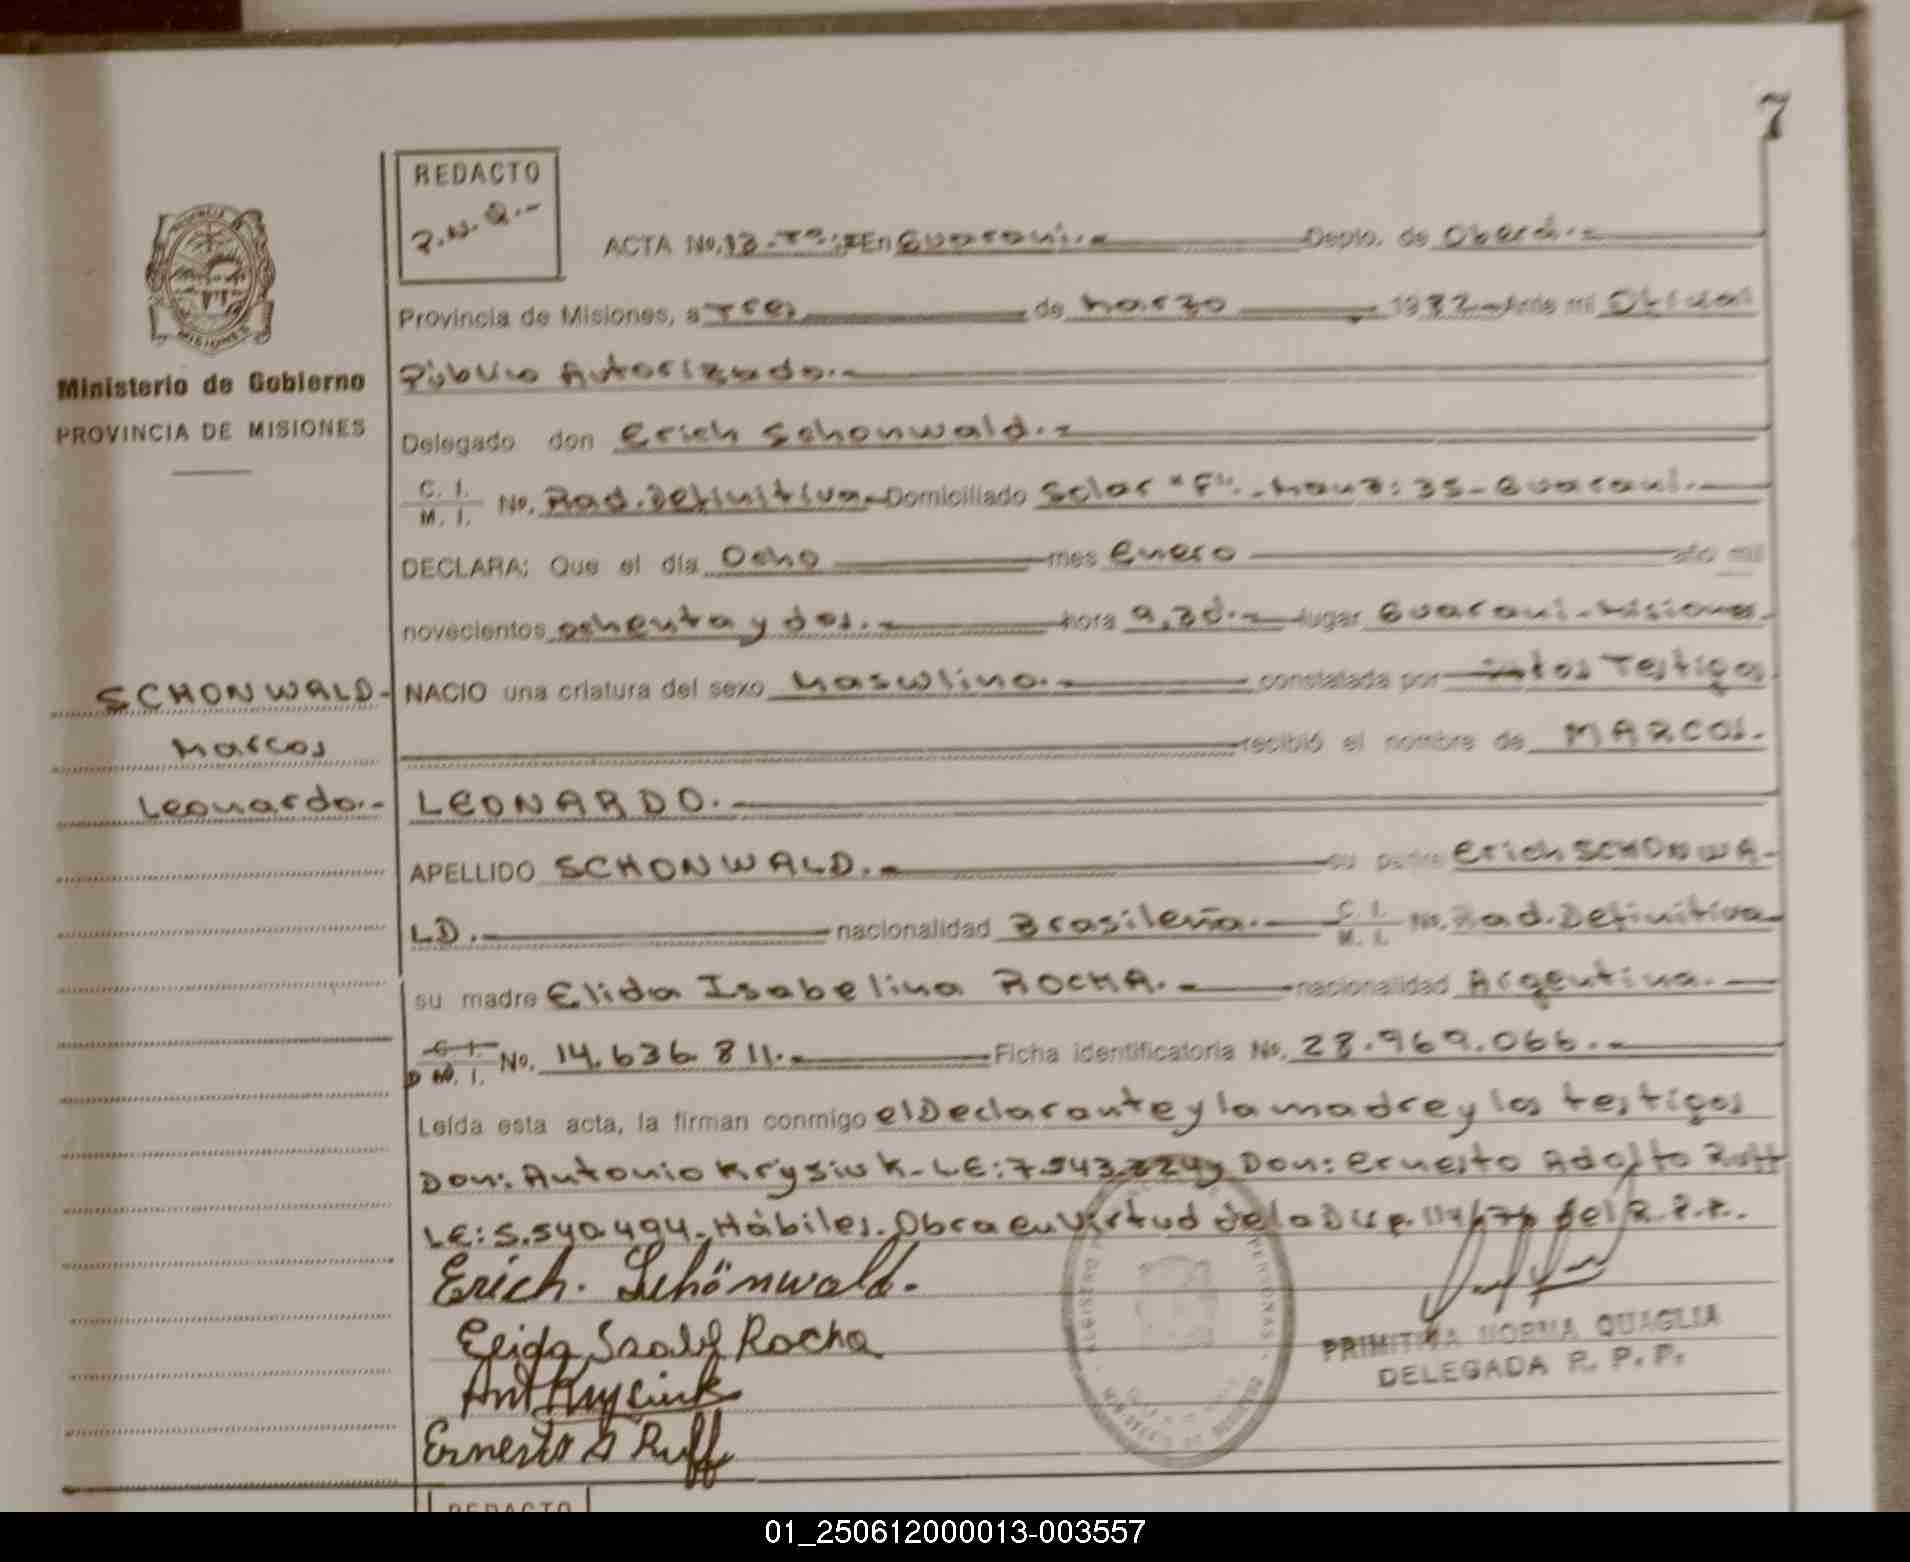 7
REDACTO
P.N.Q.-
ACTA No. 13-Tº; En Guaraní.- Depto. de Oberá.-
Provincia de Misiones, a Tres de Marzo 1982 Ante mi Oficial
Público Autorizado.-
Ministerio de Gobierno
PROVINCIA DE MISIONES
Delegado don Erich Schonwald.-
C. I. M. I. No. Rad. Definitiva Domiciliado Solar "F".-Manz: 35-Guaraní.-
DECLARA: Que el día Ocho mes Enero año mil
novecientos ochenta y dos.- hora 9,30.- lugar Guaraní-Misiones.
SCHONWALD-
Marcos
Leonardo.-
NACIO una criatura del sexo Masculino.- constatada por los Testigos
recibió el nombre de MARCOS.
LEONARDO.-
APELLIDO SCHONWALD.- su padre Erich SCHONWA-
LD.- nacionalidad Brasileña.- C. I. M. I. No. Rad. Definitiva
su madre Elida Isabelina ROCHA.- nacionalidad Argentina.-
C. I. D M. I. No. 14.636.811.- Ficha identificatoria No. 28.969.066.-
Leída esta acta, la firman conmigo el Declarante y la madre y los testigos
Don: Antonio Krysiuk-LE: y Don: Ernesto Adolfo Ruff
LE: 5.540.494-Hábiles.Obra en Virtud de la Disp. 114/76 del R.P.P.
Erich. Schönwald.
Elida Rocha
Ant Krysiuk
Ernesto A Ruff
PRIMITIVA NORMA QUAGLIA
DELEGADA R. P. P.
REDACTO
01_250612000013-003557